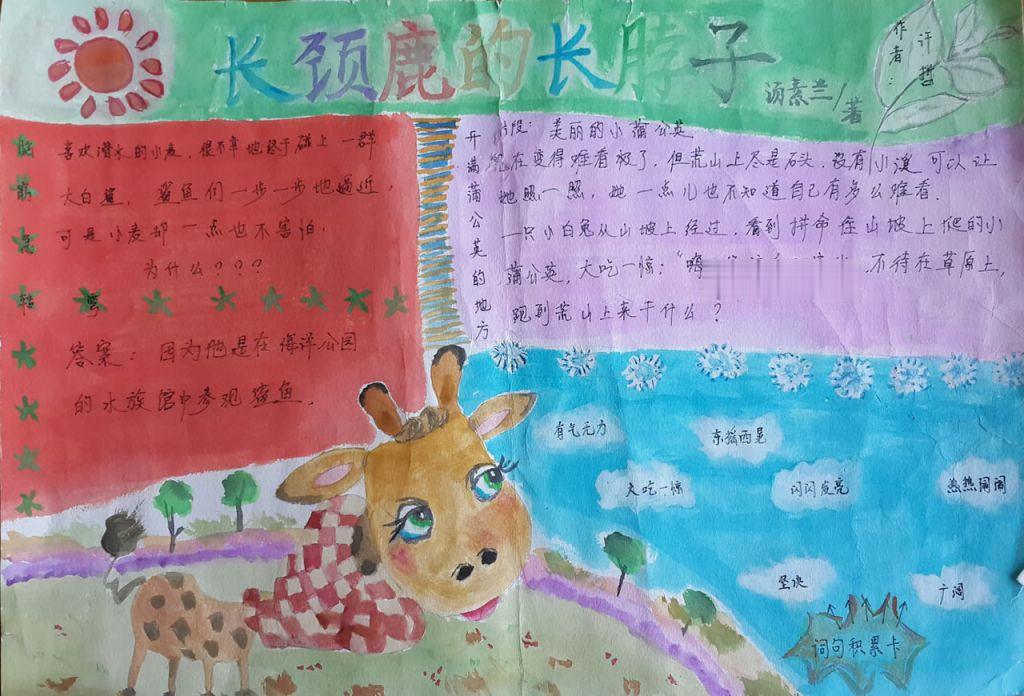 长颈鹿的长脖子
汤素兰/著
作者:
许哲
脑筋急转弯
喜欢潜水的小麦,很不幸地终于碰上一群
大白鲨,鲨鱼们一步一步地逼近,
可是小麦却一点也不害怕,
为什么???
答案:因为他是在海洋公园
的水族馆中参观鲨鱼.
开满蒲公英的地方
片段:美丽的小蒲公英
现在变得难看极了,但荒山上尽是石头,没有小溪可以让
她照一照,她一点儿也不知道自己有多么难看.
一只小白兔从山坡上经过,看到拼命往山坡上爬的小
蒲公英,大吃一惊:"嗨
,不待在草原上,
跑到荒山上来干什么?
有气无力
东摇西晃
大吃一惊
闪闪发亮
热热闹闹
坚决
广阔
词句积累卡